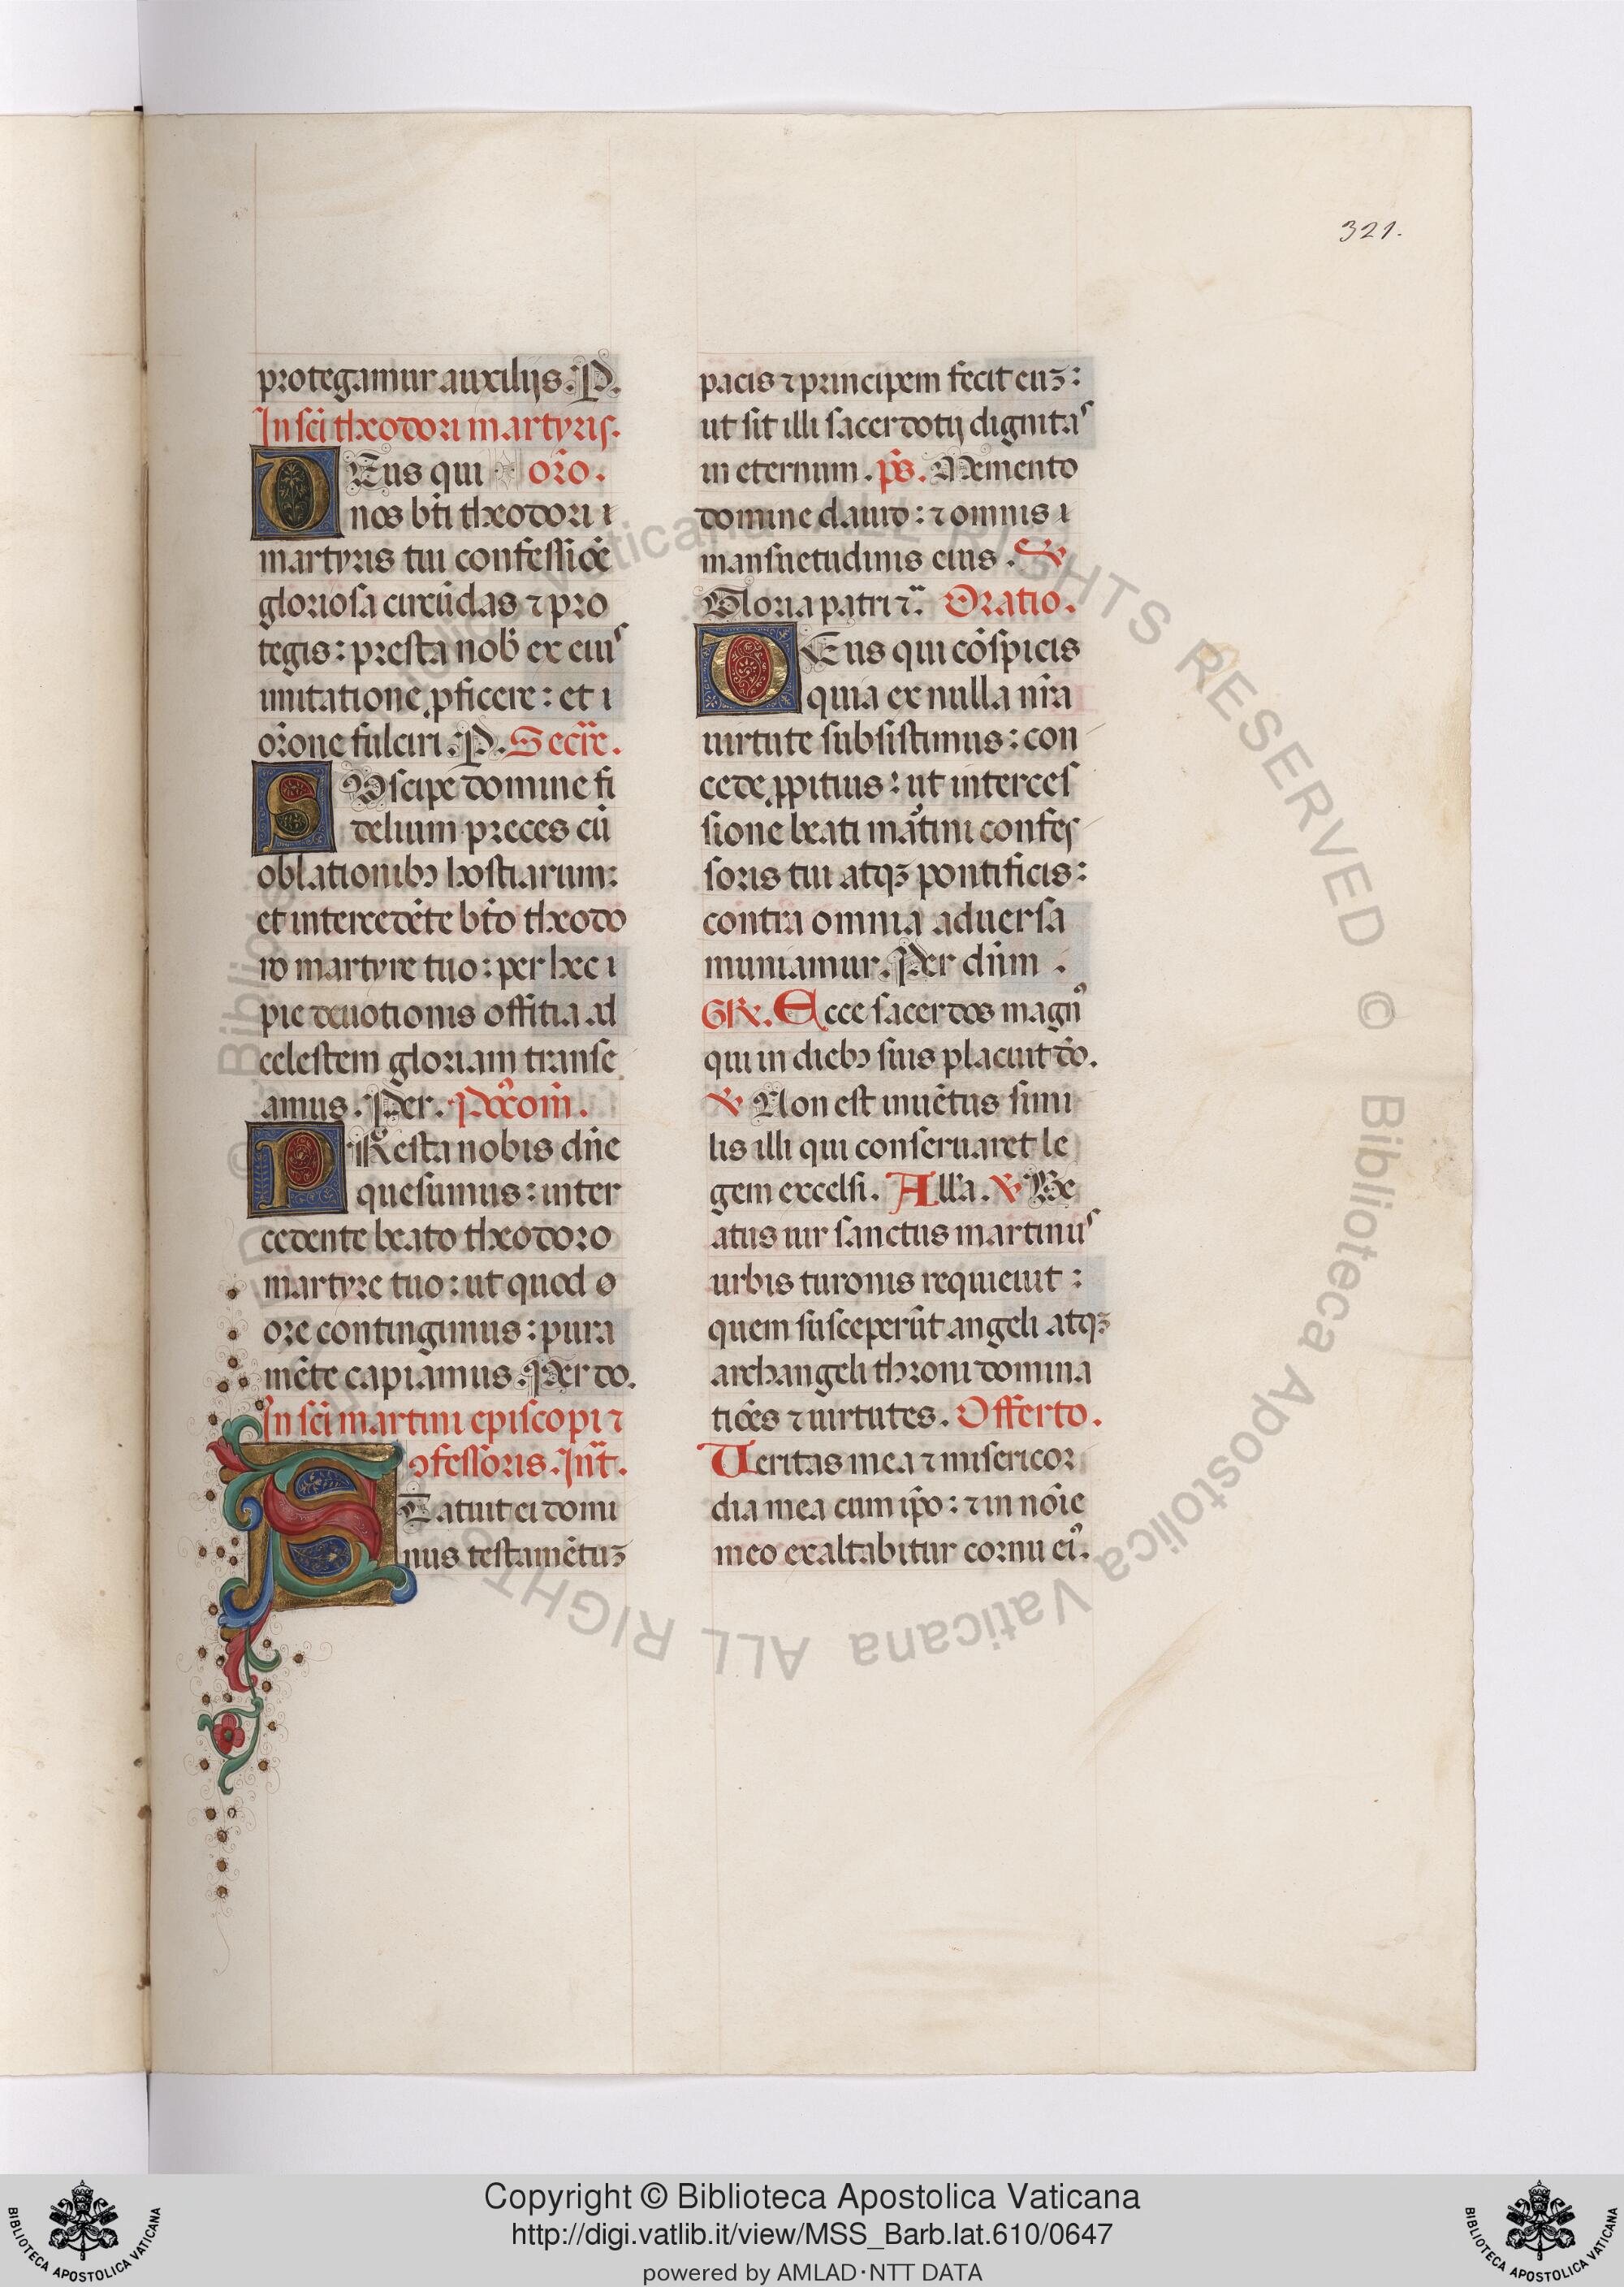 321.
protegamur auxilijs. P.
In sc̄i theodori martyris.
DEus qui or̄o.
nos bt̄i theodori
martyris tui confessiōe
gloriosa circūdas ⁊ pro
tegis: presta nob̄ ex eius
imitatione ꝓficere: et
or̄one fulciri. P. Secr̄e.
SUscipe domine fi
delium preces cū
oblationibꝫ hostiarum:
et intercedēte bt̄o theodo
ro martyre tuo: per hec
pie deuotionis offitia ad
celestem gloriam transe
amus. Per. Pꝰcom̄.
PResta nobis dn̄e
quesumus: inter
cedente beato theodoro
martyre tuo: ut quod o
ore contingimus: pura
mēte capiamus. Per do.
In sc̄i martini episcopi ⁊
ꝯfessoris. Int̄.
STatuit ei domi
nus testamētuꝫ
pacis ⁊ principem fecit euꝫ:
ut sit illi sacerdotij dignitas
in eternum. ps̄. Memento
domine dauid: ⁊ omnis
mansuetudinis eius. ℣
Gloria patri ⁊c̄. Oratio.
DEus qui cōspicis
quia ex nulla nr̄a
uirtute subsistimus: con
cede ꝓpitius: ut interces
sione beati mātini confes
soris tui atqꝫ pontificis:
contra omnia aduersa
muniamur. Per dn̄m.
GR̄. Ecce sacerdos magnꝰ
qui in diebꝫ suis placuit dō.
℣ Non est inuētus simi
lis illi qui conseruaret le
gem excelsi. All'a. ℣ Be
atus uir sanctus martinus
urbis turonis requieuit:
quem susceperūt angeli atqꝫ
archangeli throni domina
tiōes ⁊ uirtutes. Offerto.
Ueritas mea ⁊ misericor
dia mea cum ip̄o: ⁊ in nōie
meo exaltabitur cornu eiꝰ.
© Biblioteca Apostolica Vaticana ALL RIGHTS RESERVED © Biblioteca Apostolica Vaticana ALL RIGHTS RESERVED
Copyright © Biblioteca Apostolica Vaticana
http://digi.vatlib.it/view/MSS_Barb.lat.610/0647
powered by AMLAD·NTT DATA
BIBLIOTECA APOSTOLICA VATICANA
BIBLIOTECA APOSTOLICA VATICANA